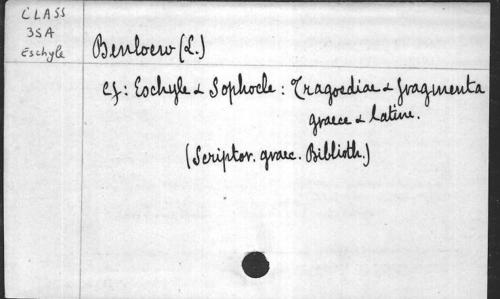 CLASS
35A
Eschyle
Benloew (L.)
cf: Eschyle & Sophocle: Tragoediae & fragmenta
graece & latine.
(Scriptor. graec. Biblioth.)